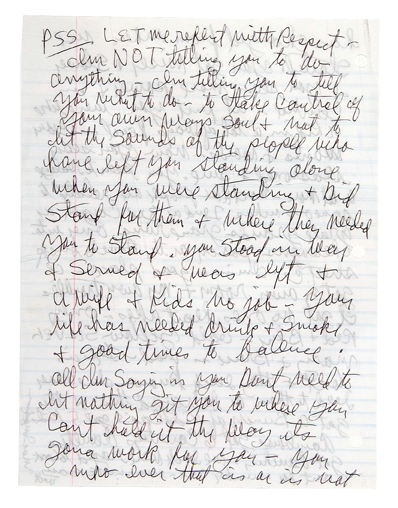 PSS. LET me repeat with Respect -
I'm NOT telling you to do
anything - I'm telling you to tell
you what to do - to take Control of
your own soul & not to
let the Sounds of the people who
have left you standing alone
when you were standing & Did
Stand for them & where they needed
you to Stand. you Stood in War
& Served & was left &
a wife & kids no job - your
life has needed drink & Smoke
& good times to balance.
all I'm Saying is you Dont need to
let nothing get you to where you
Cant hold it the way its
gona work for you - you
who ever that is or is not